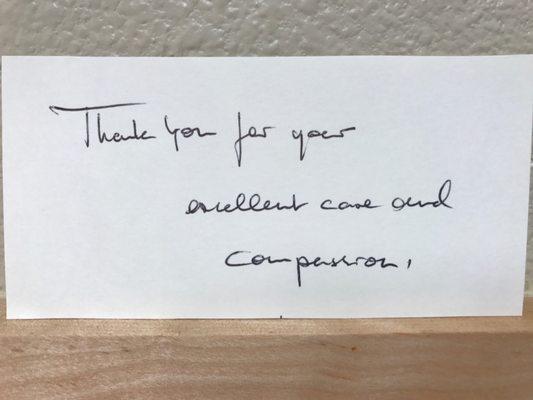 Thank you for your
excellent care and
compassion.